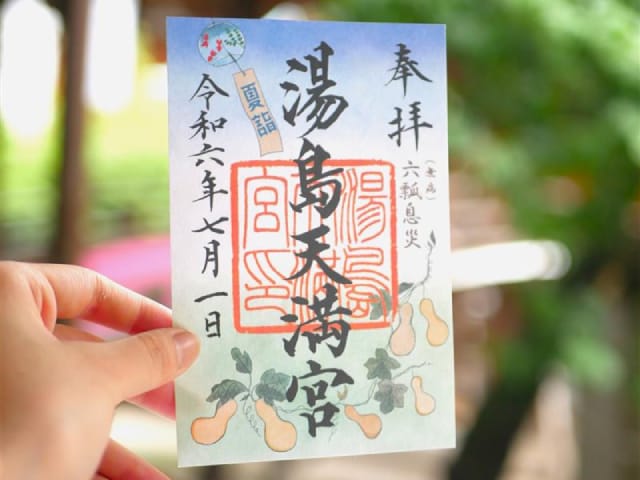 奉拝
(無病)
六瓢息災
湯島天満宮
湯島天満宮印
夏詣
令和六年七月一日